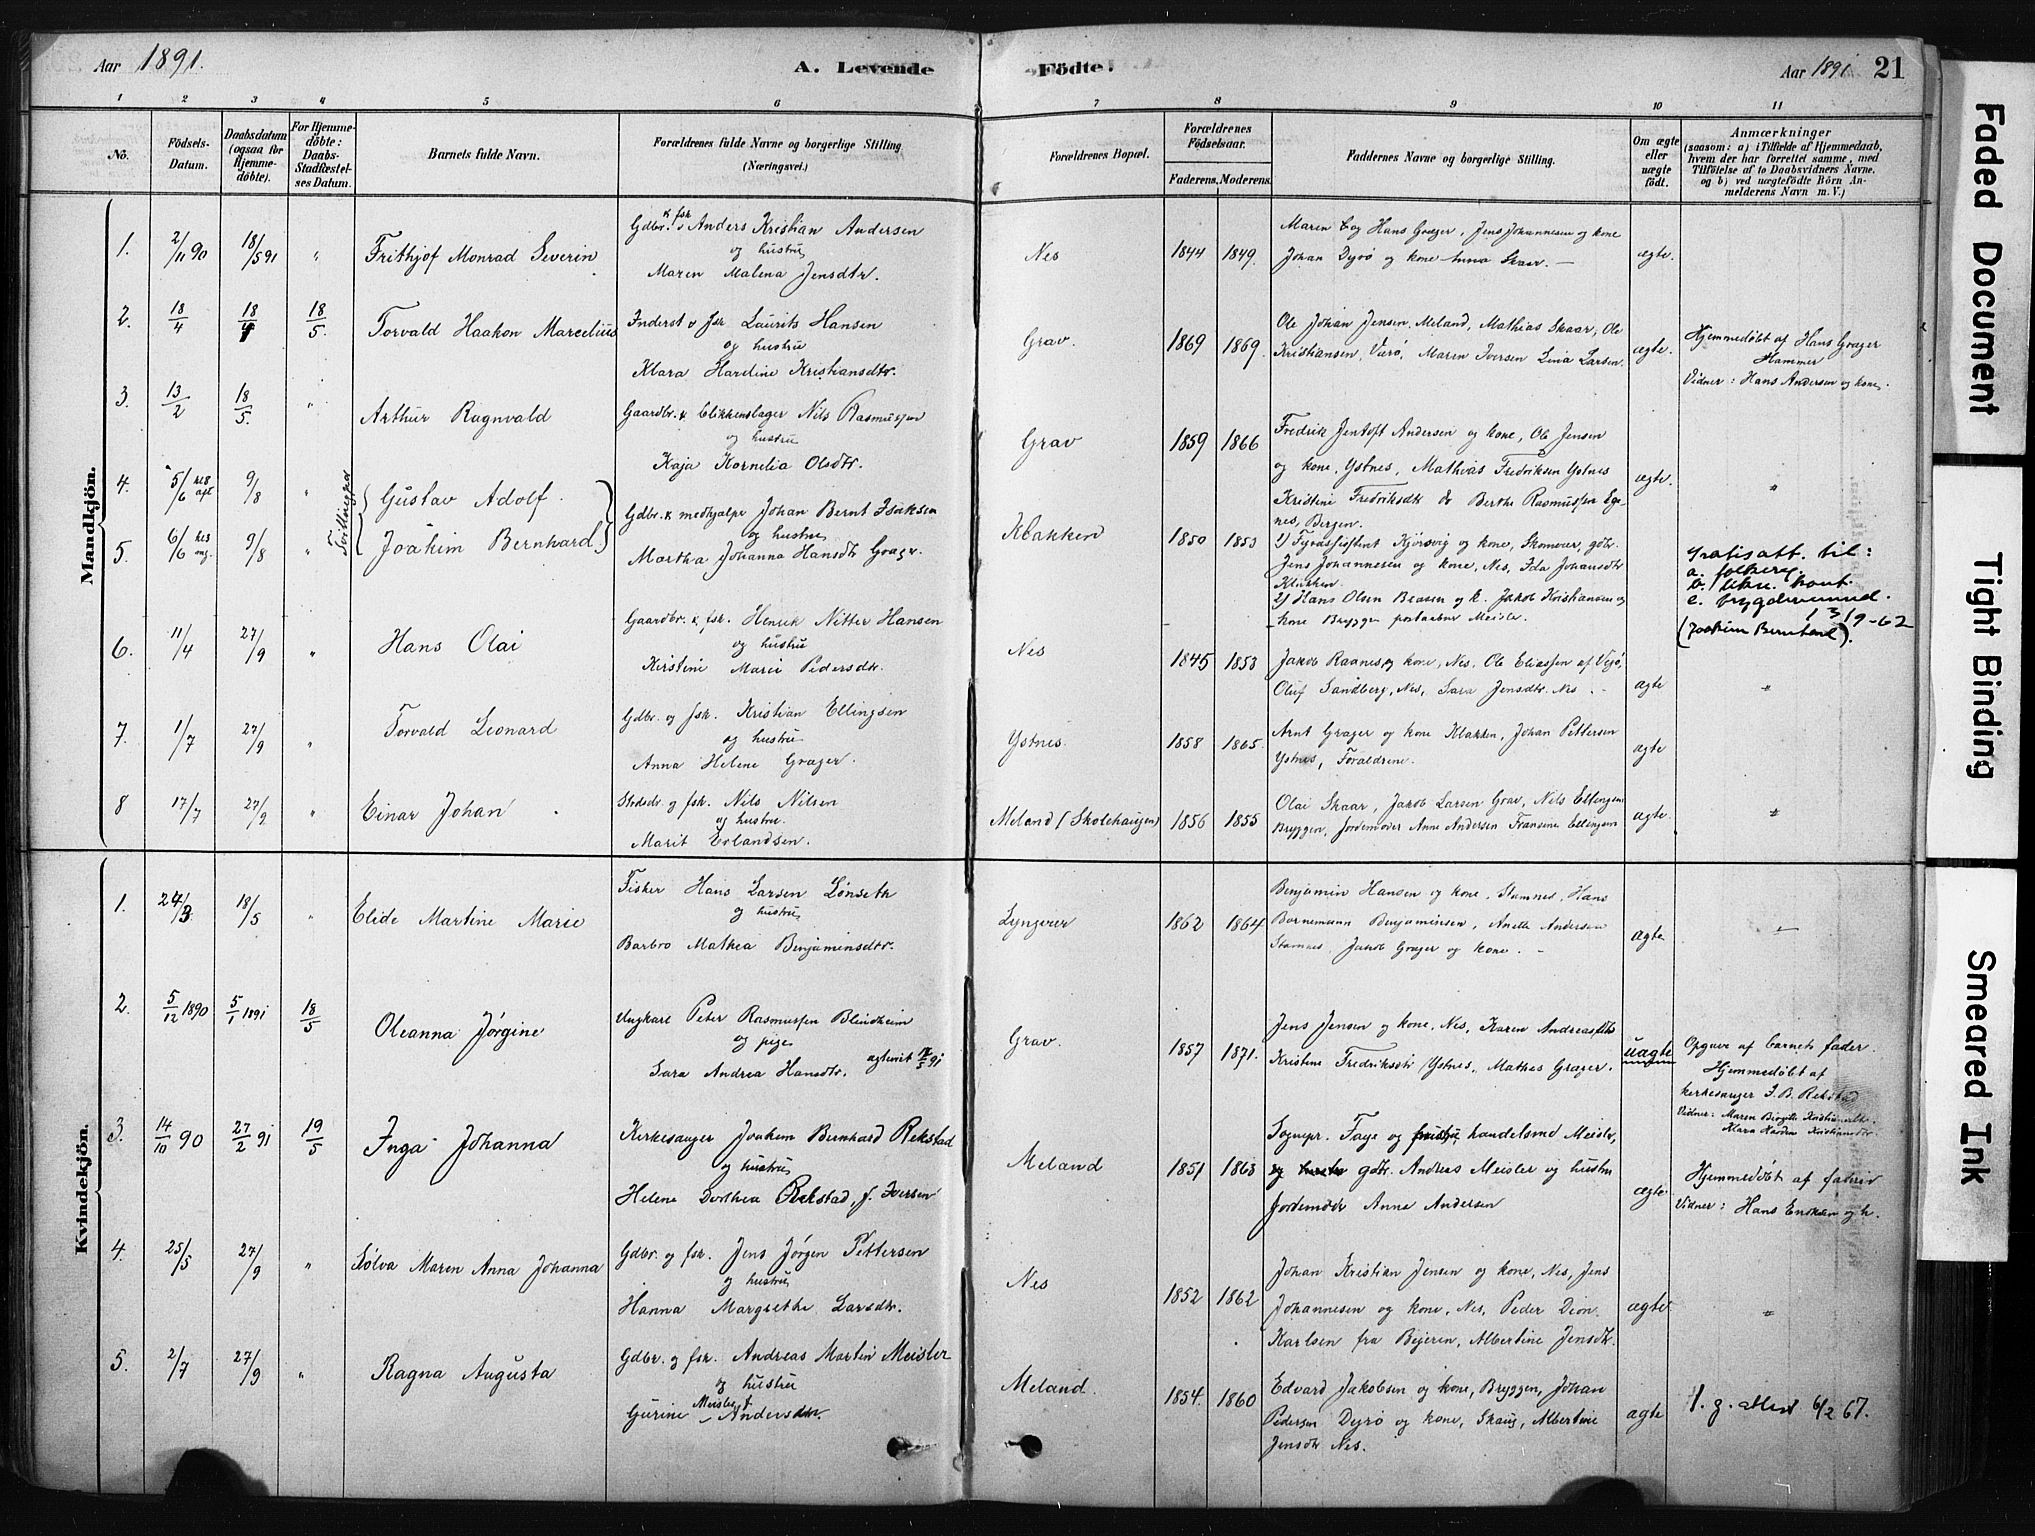 Aar 1891.
A. Levende Födte.
Aar 1891 21
1 2 3 4 5 6 7 8 9 10 11
No.
Födsels-Datum.
Daabsdatum (ogsaa for Hjemmedöbte).
For Hjemmedöbte: Daabs-Stadfæstelses Datum.
Barnets fulde Navn.
Forældrenes fulde Navne og borgerlige Stilling. (Næringsvei.)
Forældrenes Bopæl.
Forældrenes Födselsaar.
Faderens. Moderens.
Faddernes Navne og borgerlige Stilling.
Om ægte eller uægte födt.
Anmærkninger
(saasom: a) i Tilfælde af Hjemmedaab,
hvem der har forrettet samme, med
Tilföielse af to Daabsvidners Navne.
og b) ved uægtefödte Börn An-
melderens Navn m. V.)
Mandkjön.
1. 2/11 90 18/5 91 " Frithjof Monrad Severin
Gdbr. & fsk. Anders Kristian Andersen
og hustru
Maren Malena Jensdtr.
Nes 1844 1849.
Maren og Hans Græger, Jens Johannesen og kone
Johan Dyrø og kone Anna Skaar. —
ægte.
2. 18/4 18/4 18/5. Torvald Haakon Marcelius
Inderst & fsk. Laurits Hansen
og hustru
Klara Hardine Kristiansdtr.
Grav. 1869 1869.
Ole Johan Jensen, Meland, Mathias Skaar, Ole
Kristiansen, Værø, Maren Iversen Lina Larsen.
ægte.
Hjemmedøbt af Hans Græger
Hammer
Vidner: Hans Andersen og kone.
3. 13/2 18/5. " Arthur Ragnvald
Gaardbr. & blikkenslager Nils Rasmussen
og hustru
Kaja Kornelia Olsdtr.
Grav 1859 1866
Fredrik Jentoft Andersen og kone, Ole Jensen
og kone, Ystnes, Mathias Fredriksen Ystnes
Kristine Fredriksdtr Berthe Rasmussen
Bergen.
ægte. "
4. 5/6 9/8 " Tvillingpar Gustav Adolf.
5. 6/6 9/8 " Joakim Bernhard
Gdbr. & medhjælpr Johan Bernt Isaksen
og hustru
Martha Johanna Hansdtr Græger.
Klakken 1850 1853
1) Fyrassistent Kjørsvig og kone, Skomvær, gdbr.
Jens Johannesen og kone, Nes, Ida Johansdtr
Klakken.
2) Hans Olsen og k. Jakob Kristiansen og
kone Bryggen Meisler.
Gratisatt. til:
a. folkereg.
c. trygdenemnd.
1/3 19-62
(Joakim Bernhard).
6. 11/4 27/9 " Hans Olai
Gaardbr. & fsk. Henrik Nitter Hansen
og hustru
Kirstine Marie Pedersdtr.
Nes 1845 1853
Jakob Raanes og kone, Nes, Ole Eliassen af Vejø,
Oluf Sandberg, Nes, Sara Jensdtr. Nes. -
ægte "
7. 1/7 27/9 " Torvald Leonard
Gdbr. og fsk. Kristian Ellingsen
og hustru
Anna Helene Græger.
Ystnes. 1858 1865.
Arnt Græger og kone Klakken, Johan Pettersen
Ystnes, Forældrene.
ægte
8 17/7 27/9 " Einar Johan
og fsk. Nils Nilsen
og hustru.
Marit Erlandsen.
Meland (Skolehaugen) 1856 1855
Olai Skaar, Jakob Larsen Grav, Nils Ellingsen
Bryggen, Jordemoder Anne Andersen Fransine Ellingsen
ægte. "
Kvindekjön.
1. 24/3 18/5 " Elide Martine Marie
Fisker Hans Larsen Lønseth
og hustru
Barbro Mathea Benjaminsdtr.
Lyngvær 1862 1864
Benjamin Hansen og kone, Stamnes, Hans
Bornemann Benjaminsen, Anette Andersen
Stamnes, Jakob Græger og kone. -
ægte
2. 5/12 1890 5/1 1891 18/5 Oleanna Jørgine
Ungkarl Peter Rasmussen Blindheim
og pige
Sara Andrea Hansdtr. ægteviet 91
Grav. 1857 1871.
Jens Jensen og kone, Nes, Karen Andreasdtr
Kristine Fredriksdtr Ystnes, Mathes Græger.
uægte
Opgave af barnets fader.
Hjemmedøbt af
kirkesanger J. B. Rekstad
Vidner: Maren Birgitte Kristiansdtr
Klara Hardine Kristiansdtr.
3. 14/10 90 27/2 91 19/5 Inga Johanna
Kirkesanger Joakim Bernhard Rekstad
og hustru
Helene Dorthea Rekstad, f. Iversen
Meland 1851 1863
Sognepr. Faye og handelsmd Meisler,
gdbr. Andreas Meisler og hustru
Jordemoder Anna Andersen
ægte.
Hjemmedøbt af faderen
Vidner: Hans Eriksen og h.
4. 25/5 27/9 " Sølva Maren Anna Johanna
Gdbr. og fsk. Jens Jørgen Pettersen
og hustru
Hanna Margrethe Larsdtr.
Nes 1852 1862
Johan Kristian Jensen og kone, Nes, Jens
Johannesen og kone, Nes, Peder Dion
Karlsen fra Bejeren, Albertine Jensdtr.
ægte "
5. 2/7 27/9 " Ragna Augusta
Gdbr. og fsk. Andreas Martin Meisler
og hustru
Gurine Meisler f. Andersdtr.
Meland. 1854. 1860
Edvard Jakobsen og kone, Bryggen, Johan
Pedersen Dyrø og kone, Skaug, Albertine
Jensdtr Nes.
ægte
1. g. attest 6/2 67.
Faded Document
Tight Binding
Smeared Ink